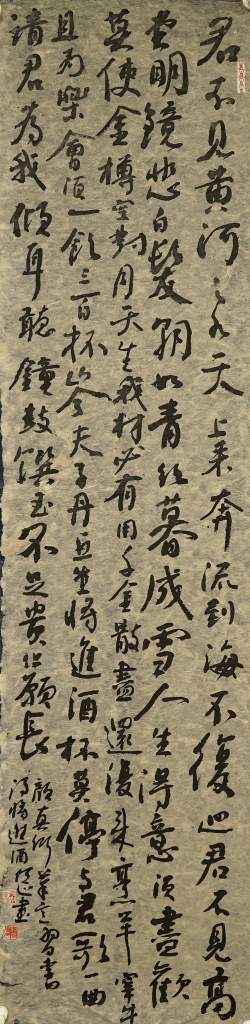 君不见黄河之水天上来奔流到海不复迴君不見高
堂明鏡悲白髮朝如青絲暮成雪人生得意須盡歡
莫使金樽空對月天生我材必有用千金散盡還復来烹羊宰牛
且为樂會須一飲三百杯岑夫子丹丘生將進酒杯莫停与君歌一曲
請君為我傾耳聽鐘鼓饌玉不足贵但願長
顏真卿筆意習書